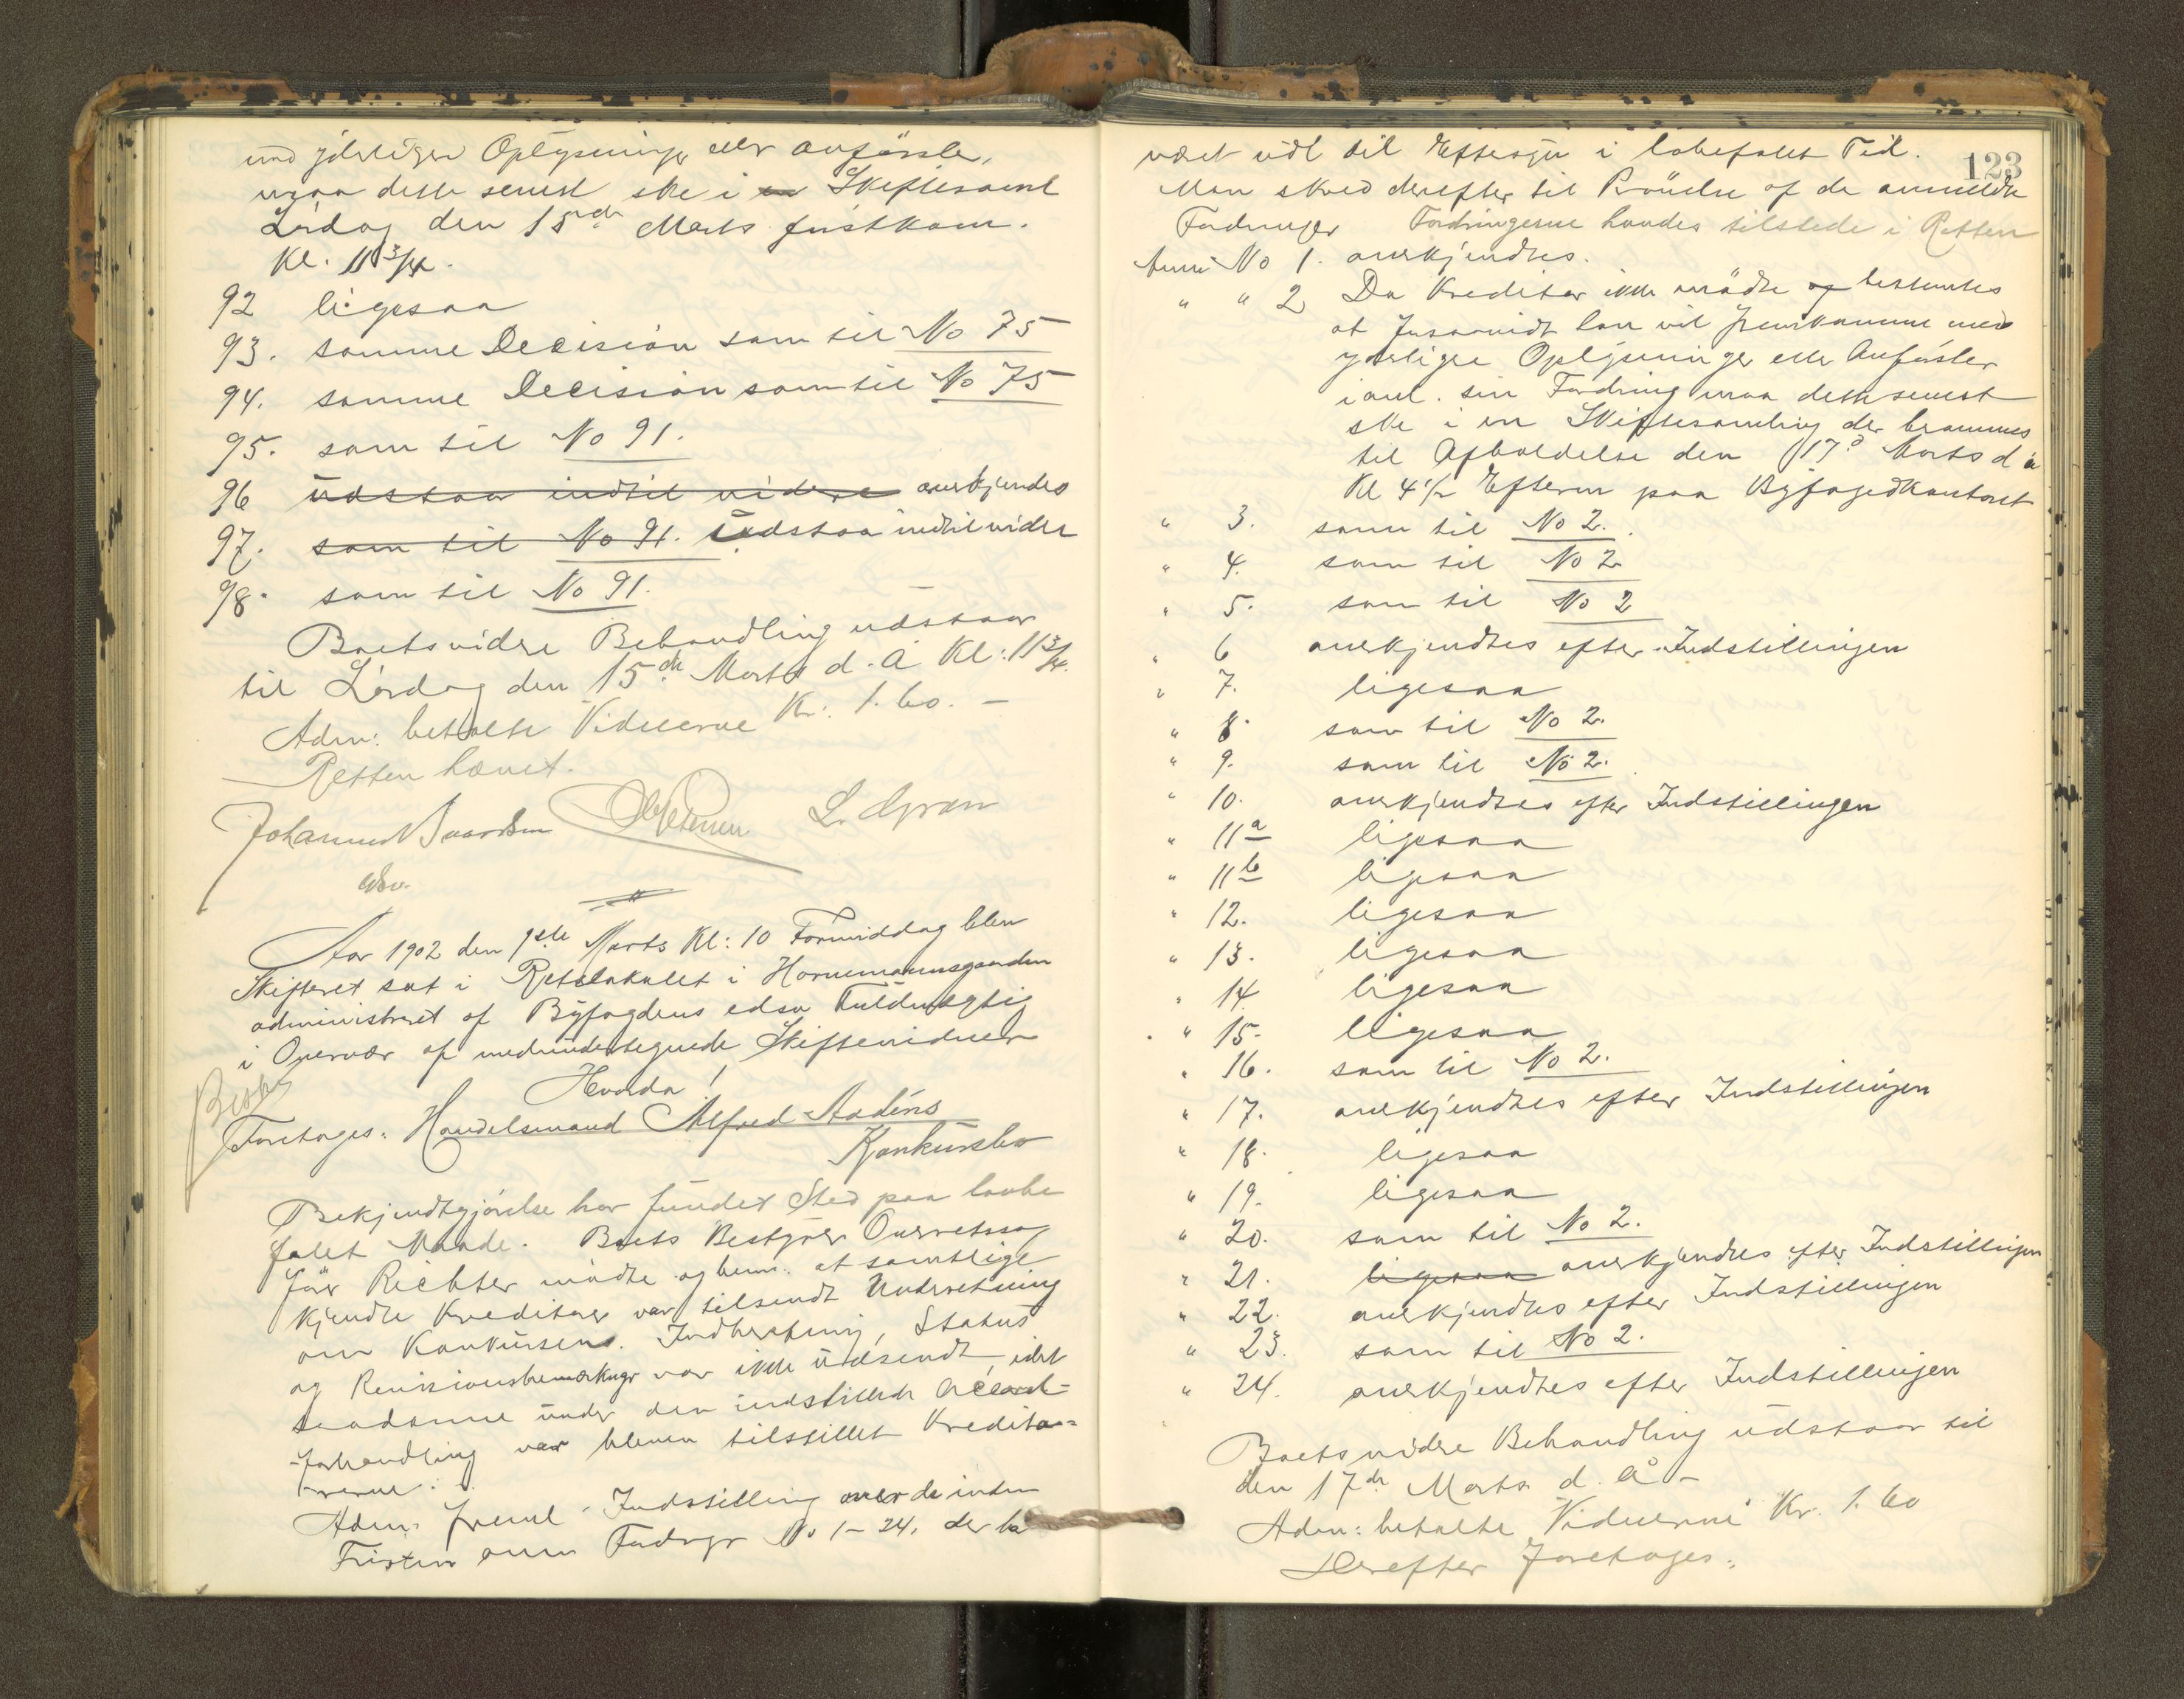 med yderligere Oplysninger eller Anførsler,
maa dette senest ske i en Skiftesaml
Lørdag den 15de Marts førstkom.
Kl. 11 3/4.
92 ligesaa
93. samme Decision som til No 75
94. samme Decision som til No 75
95. som til No 91.
96 udstaar indtil videre anerkjendes
97. som til No 91. udstaa indtil videre
98. som til No 91.
Boets videre Behandling udstaar
til Lørdag den 15de Marts d. A Kl: 11 3/4.
Adm: betalte Vidnerne Kr. 1.60. –
Retten hævet.
L. Gran
Aar 1902 den 1ste Marts Kl: 10 Formiddag blev
Skifteret sat i Retslokalet i Hornemannsgaarden
administreret af Byfogdens edsv Fuldmægtig
i Overvær af medundertegnede Skiftevidner
Hvorda!
Foretages: Handelsmand Alfred Aadéns
Konkursbo
Bekjendtgjørelse har fundet Sted paa lovbe
falet Maade. Boets Bestyrer Overretssag
fører Richter mødte og bem. at samtlige
kjendte Kreditorer var tilsendt Underretning
om Konkursen. Indberetning, Status
og Revisionsbemærkngr var ikke udsendt, idet
saadanne under den indstillede Accord-
forhandling var bleven tilstillet Kredito=
rerne.
Adm. freml. Indstilling over de inden
Fristen anm Fordngr No 1–24. der ha
123
været udl til Eftersyn i lobefalet Tid.
Man skred derefter til Prøvelse af de anmeldte
Fordringer Fordringerne havdes tilstede i Retten
No 1. anerkjendtes.
" " 2 Da Kreditor ikke mødte og bestemtes
at forsaavidt han vil fremkomme med
yderligere Oplysninger eller Anførsler
i anl. sin Fordring maa dette senest
ske i en Skiftesamling der berammes
til Afholdelse den 17de Marts d a
Kl 4 1/2 Efterm paa Byfogedkontoret
" 3. som til No 2.
" 4. som til No 2
" 5. som til No 2
" 6 anerkjendtes efter Indstillingen
" 7. ligesaa
" 8. som til No 2.
" 9. som til No 2.
" 10. anerkjendtes efter Indstillingen
" 11a ligesaa
" 11b ligesaa
" 12. ligesaa
" 13. ligesaa
" 14 ligesaa
" 15. ligesaa
" 16. som til No 2.
" 17. anerkjendtes efter Indstillingen
" 18. ligesaa
" 19. ligesaa
" 20. som til No 2.
" 21. ligesaa anerkjendtes efter Indstillingen
" 22. anerkjendtes efter Indstillingen
" 23. som til No 2.
" 24. anerkjendtes efter Indstillingen
Boets videre Behandling udstaar til
den 17de Marts d. å –
Adm: betalte Vidnerne Kr. 1.60
Derefter foretages: